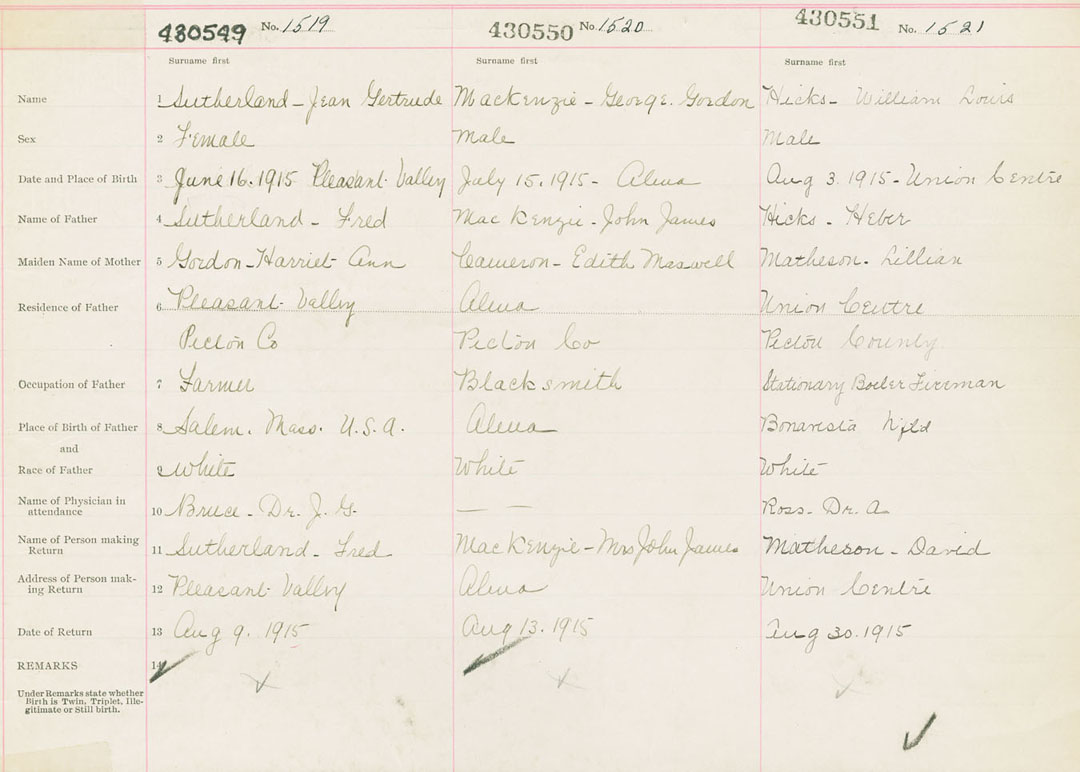 430549 No. 1519 430550 No. 1520 430551 No. 1521
Surname first Surname first Surname first
Name 1 Sutherland - Jean Gertrude MacKenzie - George Gordon Hicks - William Louis
Sex 2 Female Male Male
Date and Place of Birth 3 June 16. 1915 Pleasant Valley July 15. 1915 - Alma Aug 3. 1915 - Union Centre
Name of Father 4 Sutherland - Fred MacKenzie - John James Hicks - Heber
Maiden Name of Mother 5 Gordon - Harriet Ann Cameron - Edith Maxwell Matheson - Lillian
Residence of Father 6 Pleasant Valley Alma Union Centre
Pictou Co Pictou Co Pictou County
Occupation of Father 7 Farmer Blacksmith Stationary Boiler Fireman
Place of Birth of Father 8 Salem. Mass. U.S.A. Alma Bonavista Nfld
and
Race of Father 9 White White White
Name of Physician in
attendance 10 Bruce - Dr. J. G. — — Ross - Dr. A
Name of Person making
Return 11 Sutherland - Fred MacKenzie - Mrs John James Matheson - David
Address of Person mak-
ing Return 12 Pleasant Valley Alma Union Centre
Date of Return 13 Aug 9. 1915 Aug 13. 1915 Aug 30. 1915
REMARKS 14
Under Remarks state whether
Birth is Twin, Triplet, Ille-
gitimate or Still birth.